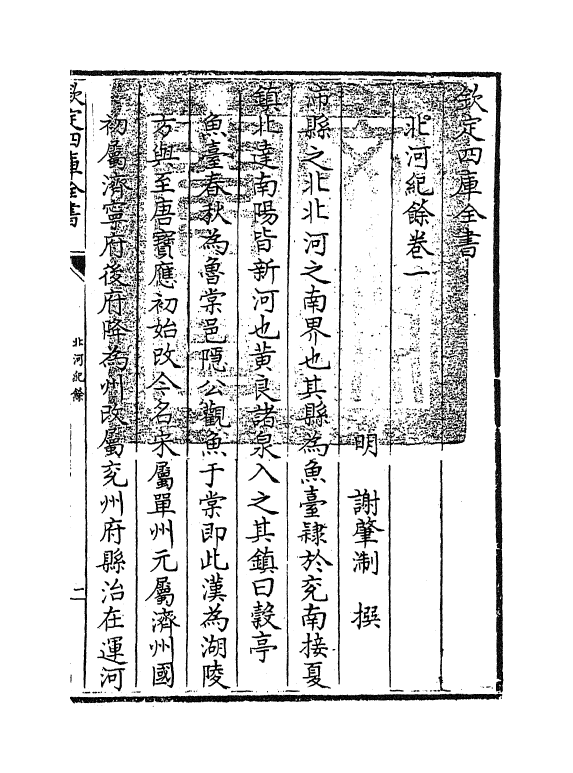 欽定四庫全書
北河紀餘卷一
明 謝肇淛 撰
沛縣之北北河之南界也其縣為魚臺隷於兖南接夏
鎮北達南陽皆新河也黄良諸泉入之其鎮曰穀亭
魚臺春秋為魯棠邑隠公觀魚于棠即此漢為湖陵
方與至唐寳應初始改今名宋屬單州元屬濟州國
初屬濟寧府後府降為州改屬兖州府縣治在運河
欽定四庫全書
北河紀餘
二